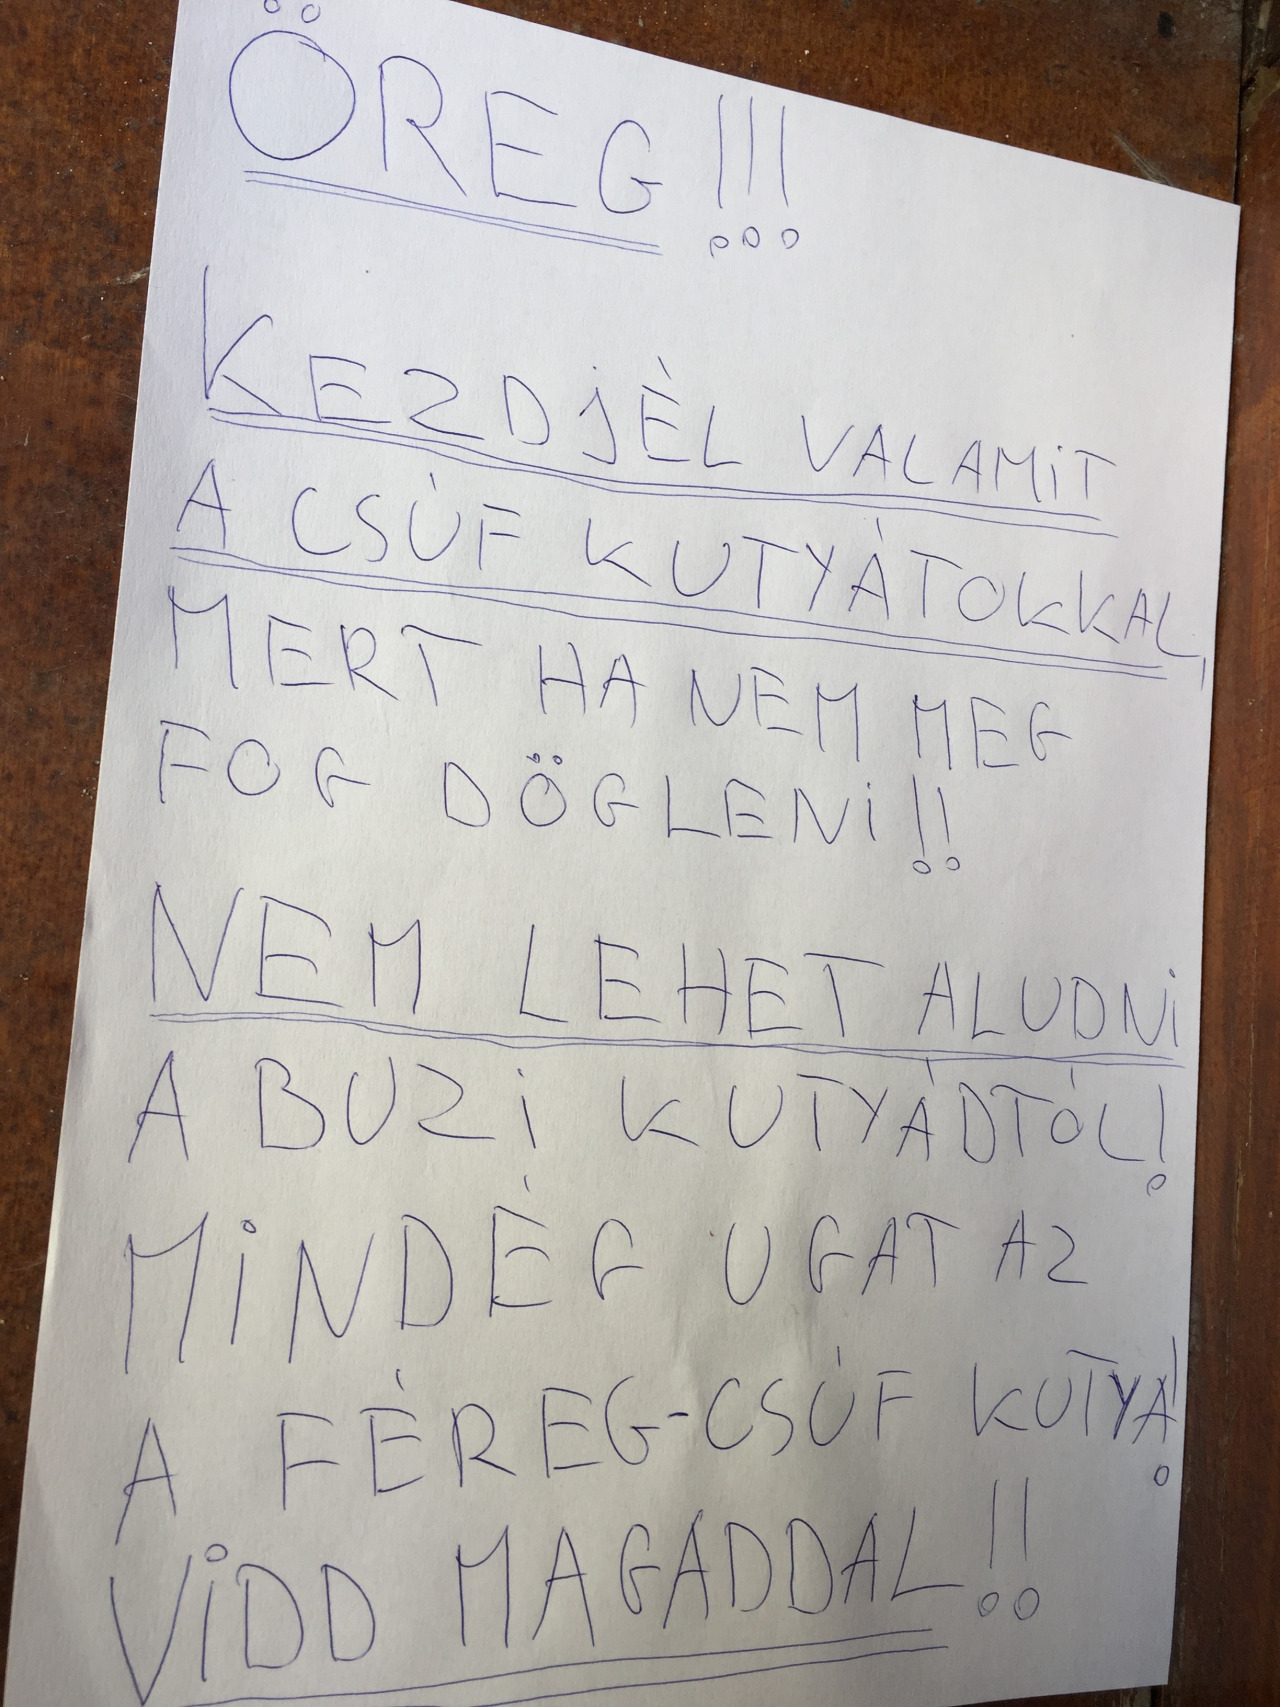 ÖREG!!!
KEZDJÉL VALAMIT
A CSÚF KUTYÁTOKKAL,
MERT HA NEM MEG
FOG DÖGLENI!!
NEM LEHET ALUDNI
A BUZI KUTYÁDTÓL!
MINDÉG UGAT AZ
A FÉREG-CSÚF KUTYA!
VIDD MAGADDAL!!